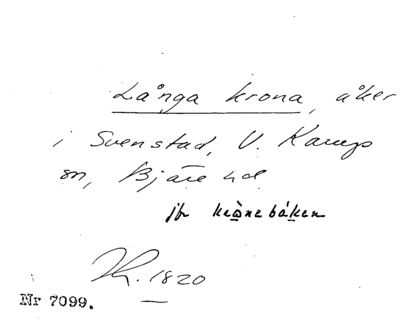 Långa krona, åker
i Svenstad, V. Karups
sn, Bjäre hd
jfr krånebåken
Lh. 1820
Nr 7099.